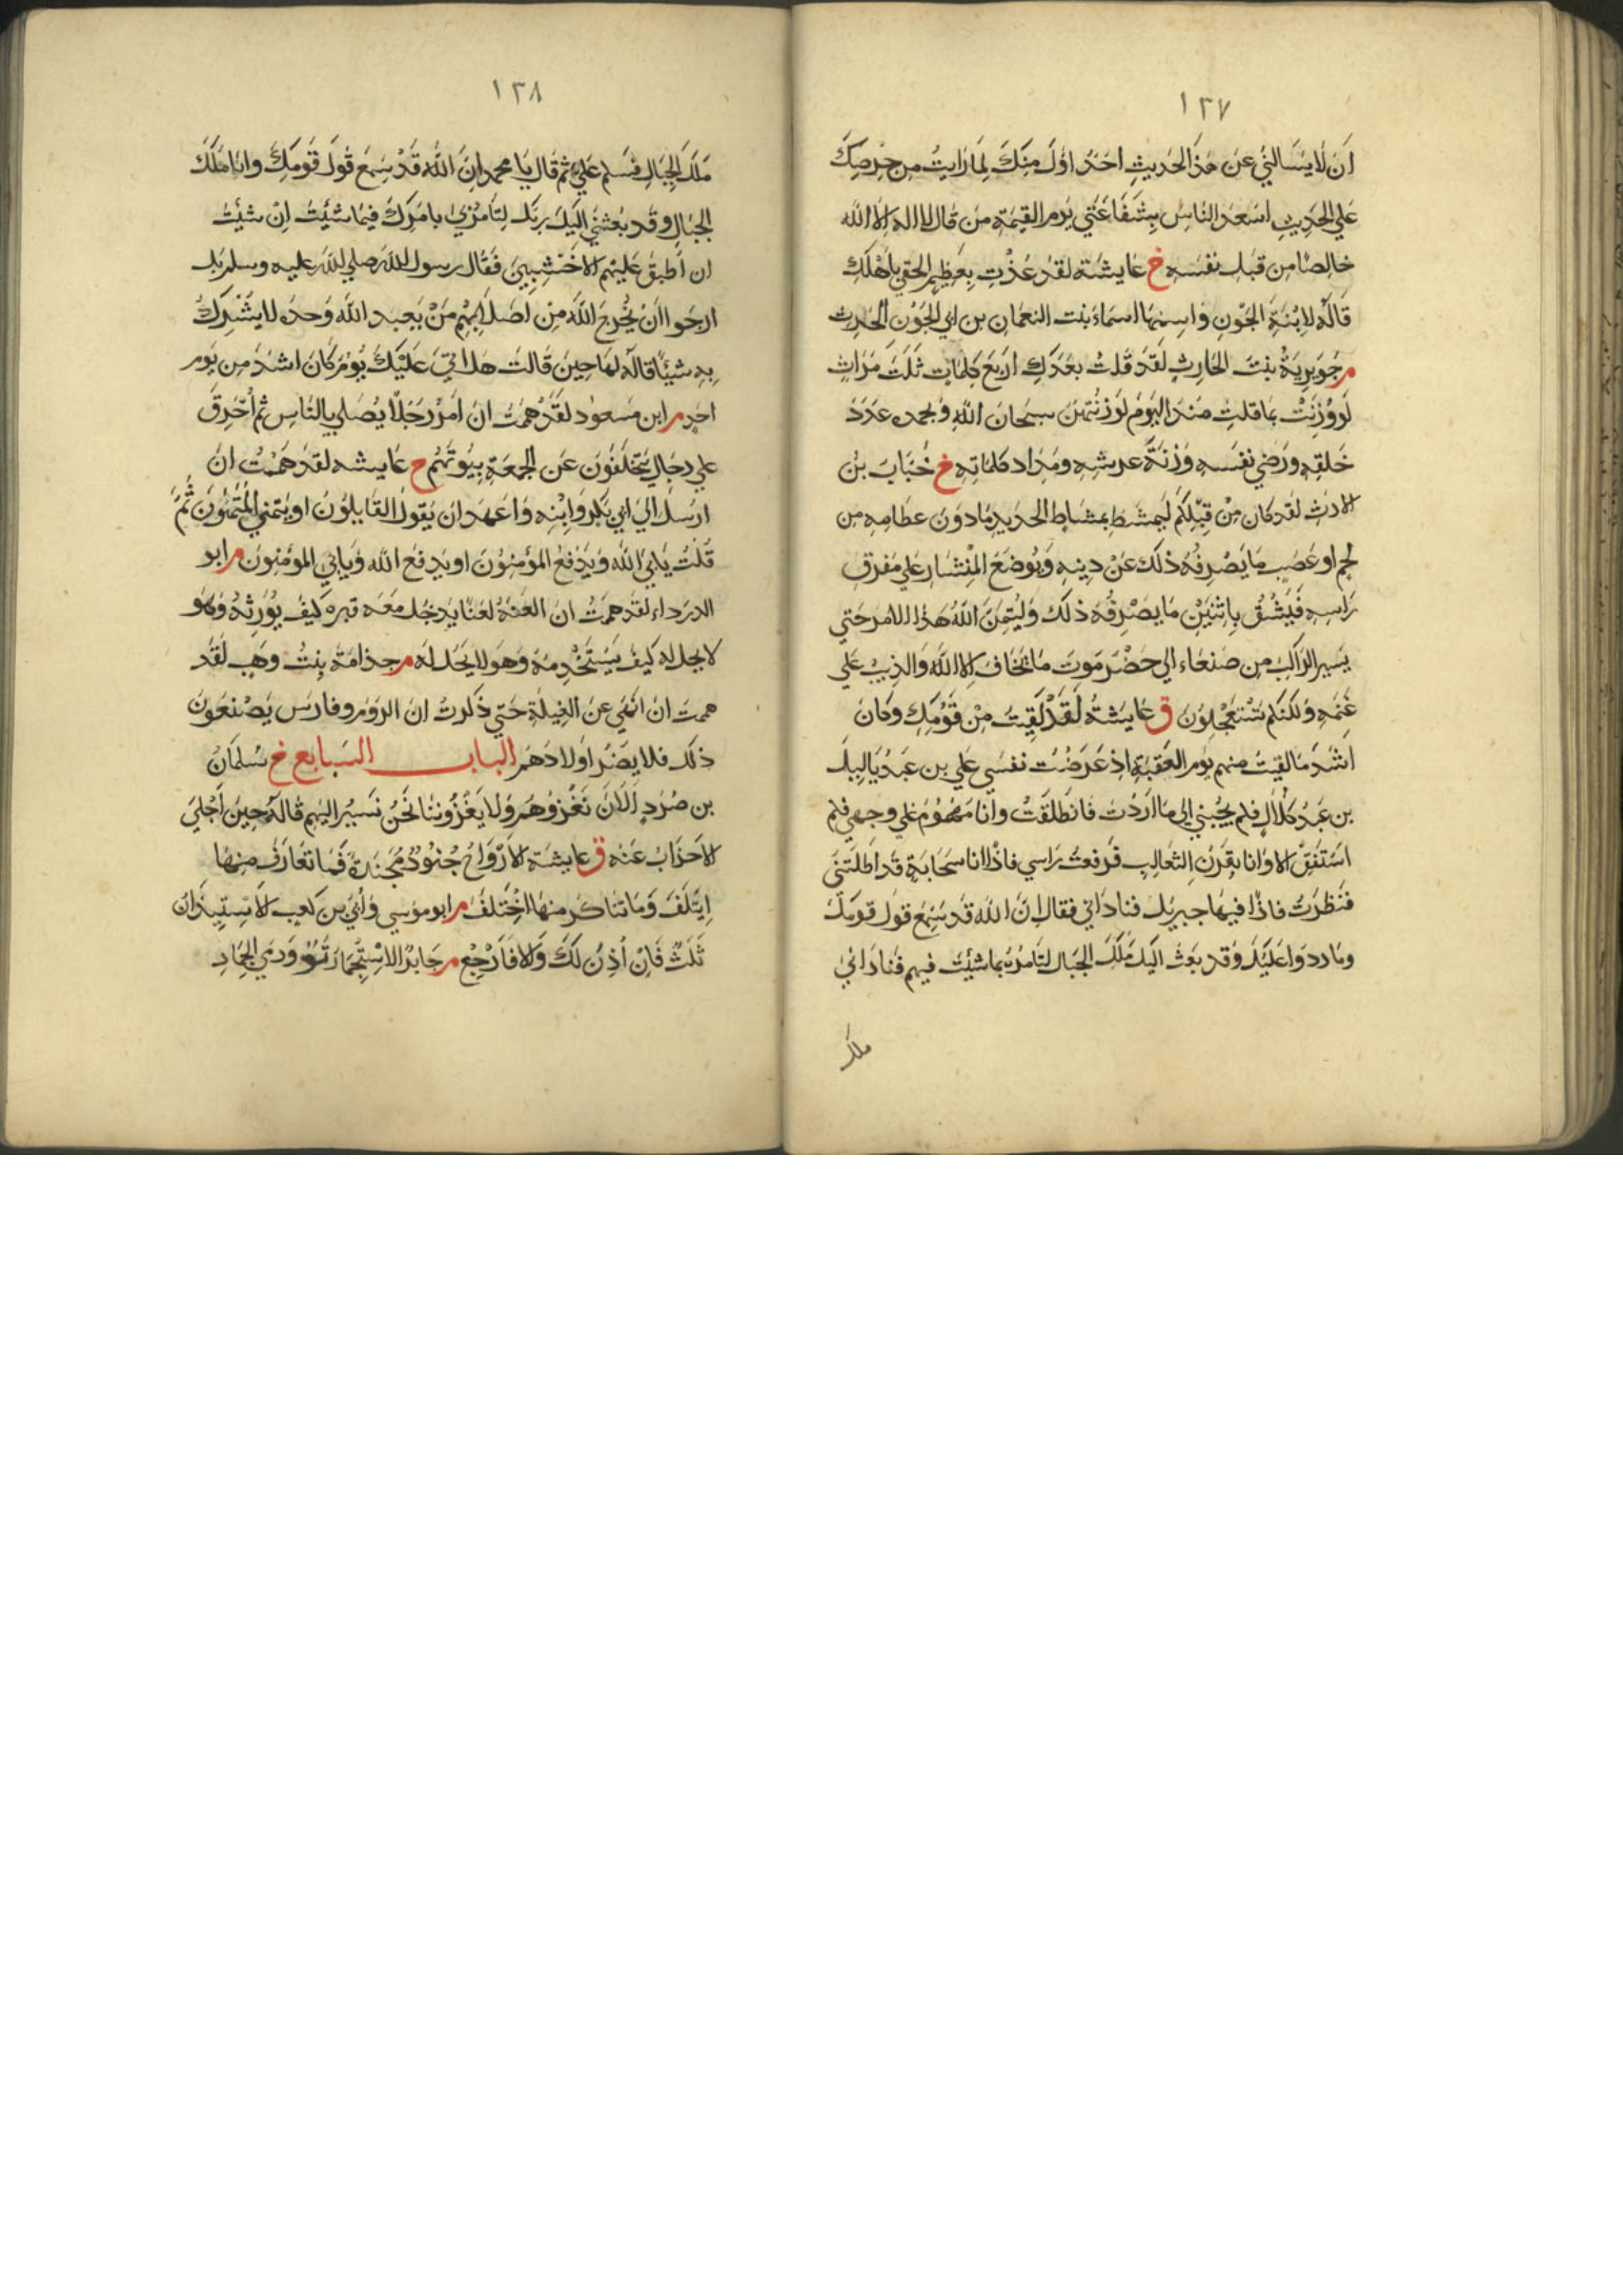 ١٣٧
أن لا يسألني عن هذا الحديث احد اول منك لما رايت من حرصك
علي الحديث اسعد الناس بشفاعتي يوم القيمة من قال لا اله الا الله
خالصا من قبل نفسه خ عايشة لقد عذت بعظيم الحقي باهلك
قاله لابنة الجون واسمها اسماء بنت النعمان بن ابي الجون الحارث
م جويرية بنت الحارث لقد قلت بعدك اربع كلمات ثلث مرات
لو وزنت بما قلت منذ اليوم لوزنتهن سبحان الله وبحمده عدد
خلقه ورضي نفسه وزنة عرشه ومداد كلماته خ خباب بن
الارث لقد كان من قبلكم ليمشط بمشاط الحديد ما دون عظامه من
لحم او عصب ما يصرفه ذلك عن دينه ويوضع المنشار علي مفرق
راسه فيشق باثنين ما يصرفه ذلك وليتمن الله هذا الامر حتي
يسير الراكب من صنعاء الي حضرموت ما يخاف الا الله والذيب علي
غنمه ولكنكم تستعجلون ق عايشة لقد لقيت من قومك وكان
اشد ما لقيت منهم يوم العقبة اذ عرضت نفسي علي بن عبد ياليل
بن عبد كلال فلم يجبني الي ما اردت فانطلقت وانا مهموم علي وجهي فلم
استفق الا وانا بقرن الثعالب فرفعت راسي فاذا انا سحابة قد اظلتني
فنظرت فاذا فيها جبريل فناداني فقال ان الله قد سمع قول قومك
وما ردوا عليك وقد بعث اليك ملك الجبال لتامره بما شئت فيهم فناداني
ملك
١٣٨
ملك الجبال فسلم علي ثم قال يا محمد ان الله قد سمع قول قومك وانا ملك
الجبال وقد بعثني اليك ربك لتامرني بامرك فيما شئت ان شئت
ان اطبق عليهم الاخشبين فقال رسول الله صلي الله عليه وسلم بل
ارجو ان يخرج الله من اصلابهم من يعبد الله وحده لا يشرك
به شيئا قاله لها حين قالت هل اتي عليك يوم كان اشد من يوم
احد م ابن مسعود لقد هممت ان امر رجلا يصلي بالناس ثم احرق
علي رجال يتخلفون عن الجمعة بيوتهم خ عايشه لقد هممت ان
ارسل الي ابي بكر وابنه واعهد ان يقول القايلون او يتمني المتمنون ثم
قلت يابي الله ويدفع المؤمنون او يدفع الله ويابي المؤمنون م ابو
الدرداء لقد هممت ان العنه لعنا يدخل معه قبره كيف يورثه وهو
لا يحل له كيف يستخدمه وهو لا يحل له م جذامة بنت وهب لقد
هممت ان انهي عن الغيلة حتي ذكرت ان الروم وفارس يصنعون
ذلك فلا يضر اولادهم الباب السابع خ سلمان
بن صرد الان نغزوهم ولا يغزوننا نحن نسير اليهم قاله حين اجلي
الاحزاب عنه ق عايشة الارواح جنود مجندة فما تعارف منها
ايتلف وما تناكر منها اختلف م ابو موسي وابي بن كعب الاستيذان
ثلث فان أذن لك والا فارجع م جابر الاستجمار تو ورمي الجمار